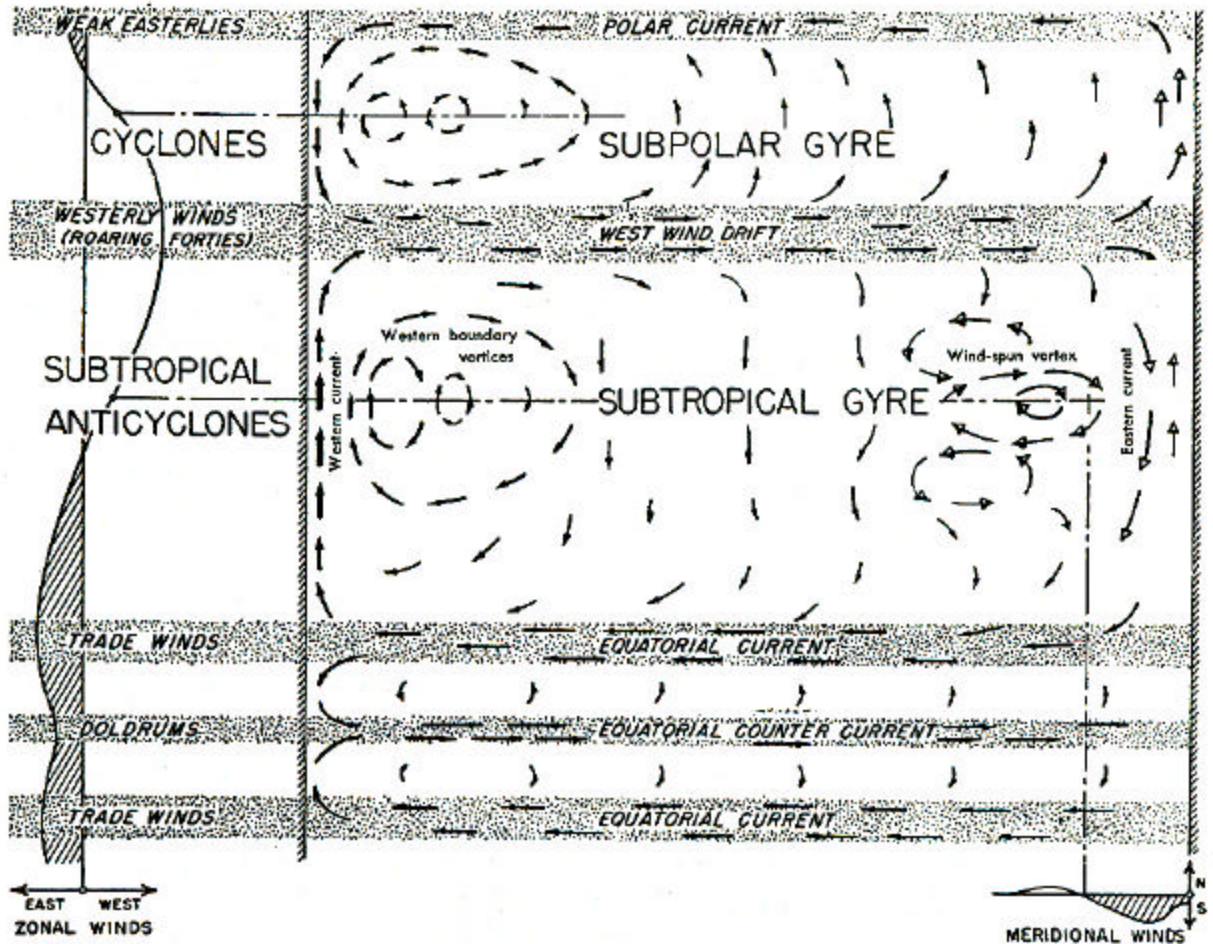 WEAK EASTERLIES
POLAR CURRENT
CYCLONES
SUBPOLAR GYRE
WESTERLY WINDS
(ROARING FORTIES)
WEST WIND DRIFT
Western boundary
vortices
Wind-spun vortex
SUBTROPICAL
ANTICYCLONES
Western current
SUBTROPICAL GYRE
Eastern current
TRADE WINDS
EQUATORIAL CURRENT
DOLDRUMS
EQUATORIAL COUNTER CURRENT
TRADE WINDS
EQUATORIAL CURRENT
EAST WEST
ZONAL WINDS
N
S
MERIDIONAL WINDS